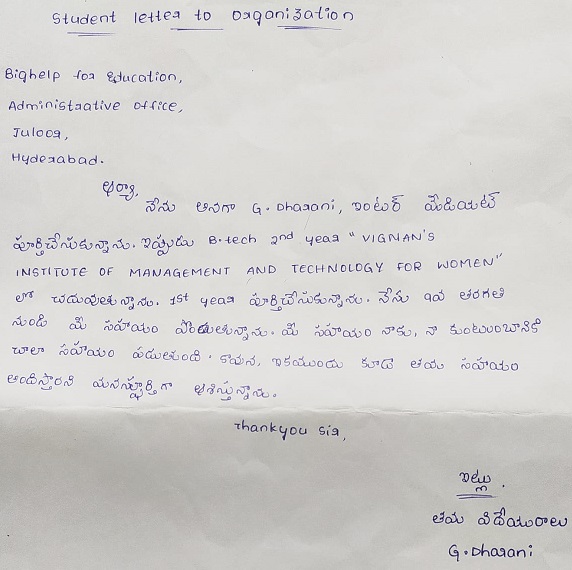 Student letter to Organization
Bighelp for Education,
Administrative office,
Juloor,
Hyderabad.
ఆర్యా,
నేను అనగా G. Dharani, ఇంటర్ మీడియట్
పూర్తిచేసుకున్నాను. ఇప్పుడు B.tech 2nd year "VIGNAN'S
INSTITUTE OF MANAGEMENT AND TECHNOLOGY FOR WOMEN"
లో చదువుతున్నాను. 1st year పూర్తిచేసుకున్నాను. నేను 9వ తరగతి
నుండి మీ సహాయం పొందుతున్నాను. మీ సహాయం నాకు, నా కుటుంబానికి
చాలా సహాయం పడుతుంది. కావున, ఇకముందు కూడా తమ సహాయం
అందిస్తారని మనస్ఫూర్తిగా ఆశిస్తున్నాను.
Thankyou Sir,
ఇట్లు.
తమ విదేయురాలు
G. Dharani